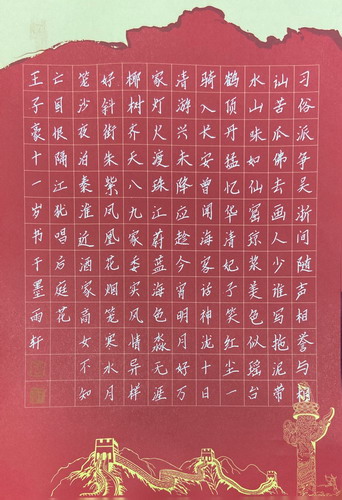 习俗派争吴浙间随声相誉与相
讪苦瓜佛去画人少谁写拖泥带
水山珠如仙窟琼浆美色似瑶台
鹤顶丹猛忆华清妃子笑红尘一
骑入长安曾闻海客话神泷十日
清游兴未降应趁今宵明月好万
家灯火渡珠江蔚蓝海色淼无涯
椰树齐天八九家委实风情异样
好斜街朱紫凤凰花烟笼寒水月
笼沙夜泊秦淮近酒家商女不知
亡国恨隔江犹唱后庭花
王子豪十一岁书于墨雨轩